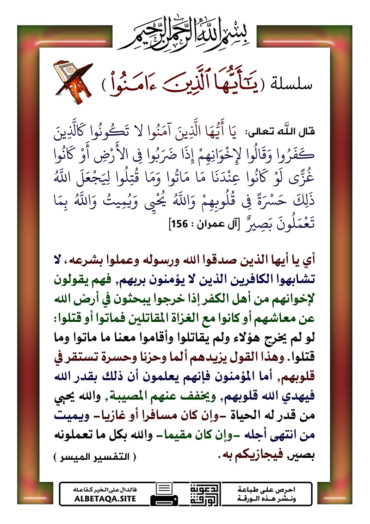 بِسْمِ اللَّهِ الرَّحْمَنِ الرَّحِيمِ
سلسلة ( يَـٰٓأَيُّهَا ٱلَّذِينَ ءَامَنُوا۟ )
قال الله تعالى: يَا أَيُّهَا الَّذِينَ آمَنُوا لَا تَكُونُوا كَالَّذِينَ
كَفَرُوا وَقَالُوا لِإِخْوَانِهِمْ إِذَا ضَرَبُوا فِي الْأَرْضِ أَوْ كَانُوا
غُزًّى لَوْ كَانُوا عِنْدَنَا مَا مَاتُوا وَمَا قُتِلُوا لِيَجْعَلَ اللَّهُ
ذَلِكَ حَسْرَةً فِي قُلُوبِهِمْ وَاللَّهُ يُحْيِي وَيُمِيتُ وَاللَّهُ بِمَا
تَعْمَلُونَ بَصِيرٌ [آل عمران : 156]
أي يا أيها الذين صدقوا الله ورسوله وعملوا بشرعه، لا
تشابهوا الكافرين الذين لا يؤمنون بربهم, فهم يقولون
لإخوانهم من أهل الكفر إذا خرجوا يبحثون في أرض الله
عن معاشهم أو كانوا مع الغزاة المقاتلين فماتوا أو قتلوا:
لو لم يخرج هؤلاء ولم يقاتلوا وأقاموا معنا ما ماتوا وما
قتلوا. وهذا القول يزيدهم ألما وحزنا وحسرة تستقر في
قلوبهم, أما المؤمنون فإنهم يعلمون أن ذلك بقدر الله
فيهدي الله قلوبهم, ويخفف عنهم المصيبة, والله يحيي
من قدر له الحياة -وإن كان مسافرا أو غازيا- ويميت
من انتهى أجله -وإن كان مقيما- والله بكل ما تعملونه
بصير, فيجازيكم به.
( التفسير الميسر )
احرص على طباعة
ونشر هذه الورقة
الدعوية
الورقة
فالدال على الخير كفاعله
ALBETAQA.SITE